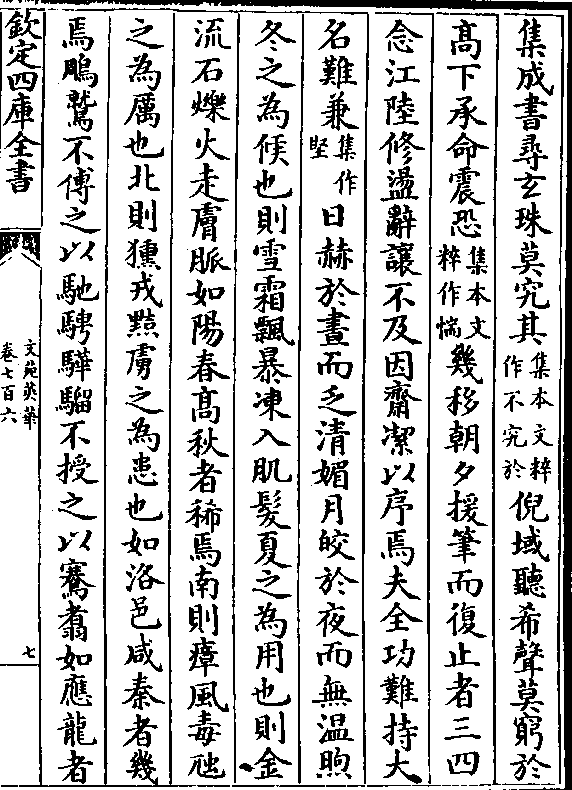 集成書尋玄珠莫究其集本文粹作不究於倪域聽希聲莫窮於
高下承命震恐集本文粹作惴幾移朝夕援筆而復止者三四
念江陸修盪辭讓不及因齋潔以序焉夫全功難持大
名難兼集作堅日赫於晝而乏清媚月皎於夜而無温煦
冬之為候也則雪霜飄暴凍入肌髮夏之為用也則金
流石爍火走膚脈如陽春高秋者稀焉南則瘴風毒䖳
之為厲也北則獯戎黠虜之為患也如洛邑咸秦者幾
焉鵰鷲不傅之以馳騁驊騮不授之以騫翥如應龍者
欽定四庫全書
文苑英華
卷七百六
七